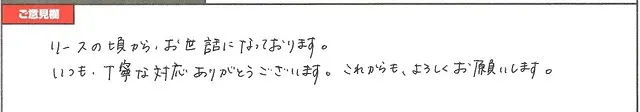 ご意見欄
リースの頃から、お世話になっております。
いつも、丁寧な対応ありがとうございます。これからも、よろしくお願いします。